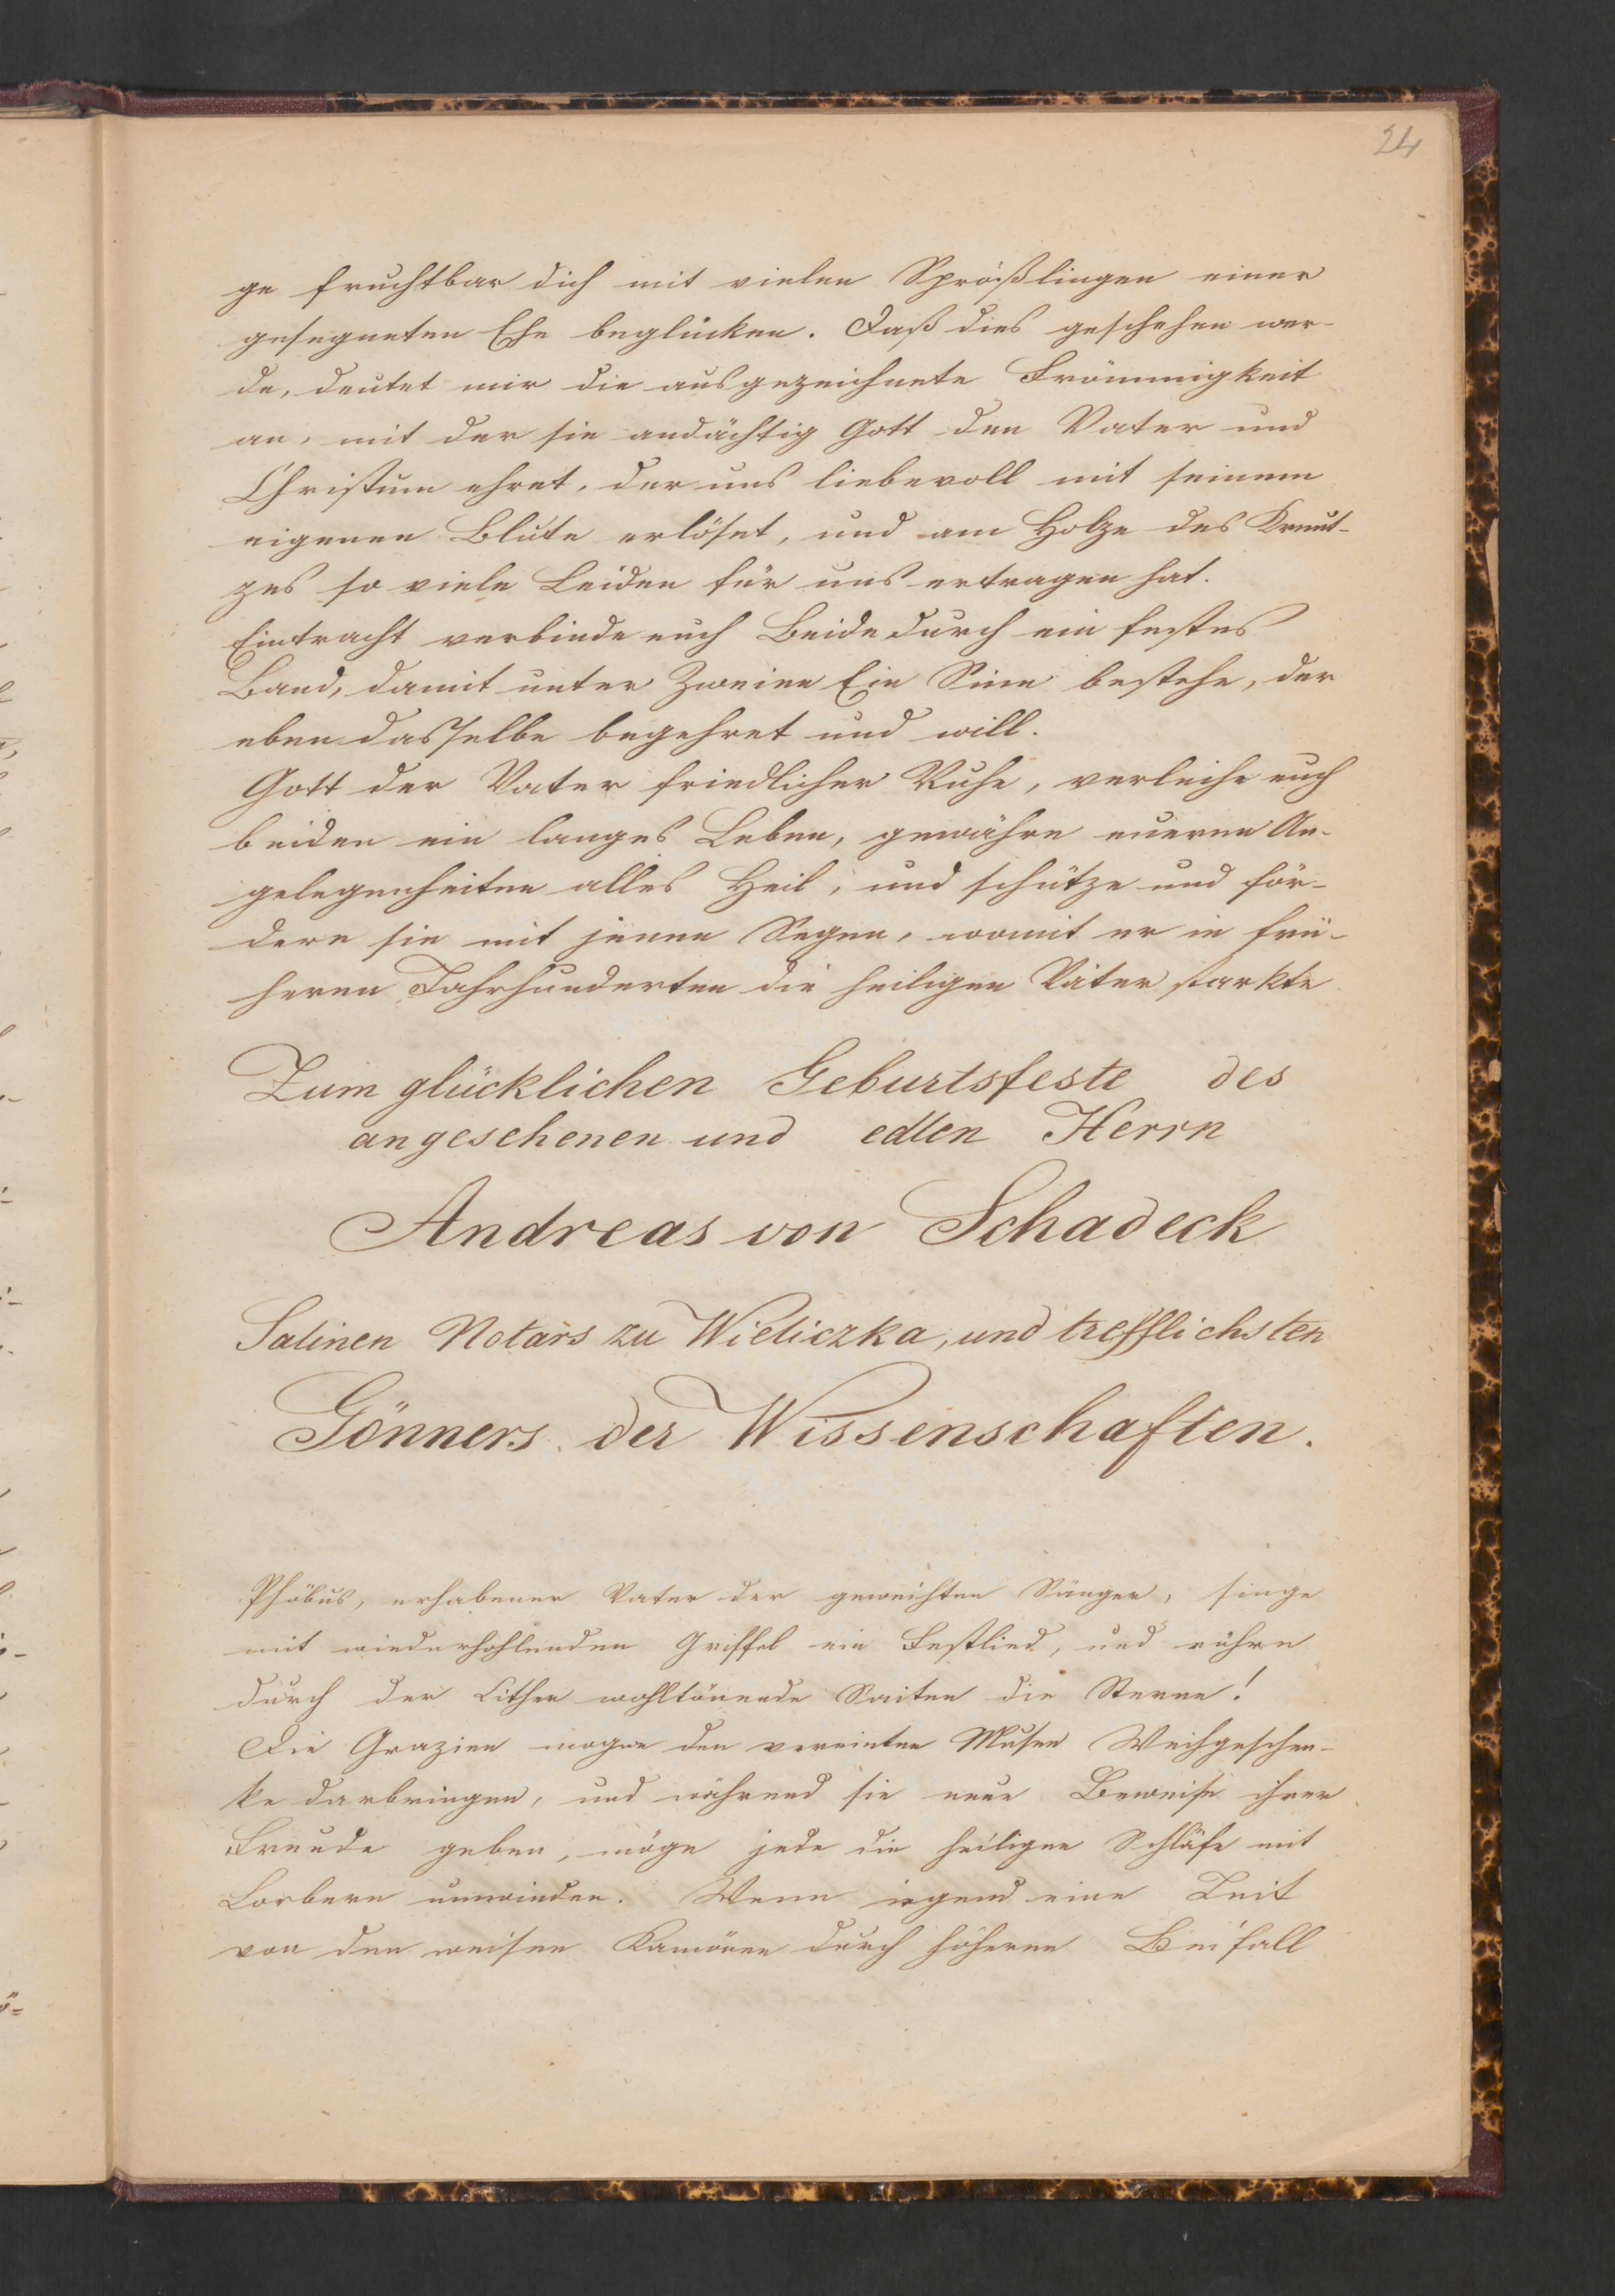 24
ge fruchtbar dich mit vielen Sprößlingen einer
gesegneten Ehe beglücken. Daß dies geschehen wer-
de, deutet mir die ausgezeichnete Frömmigkeit
an, mit der sie andächtig Gott den Vater und
Christum ehret, der uns liebevoll mit seinem
eigenen Blute erlöset, und am Holze des Kreut-
zes so viele Leiden für uns ertragen hat.
Eintracht verbinde euch Beide durch ein festes
Band, damit unter Zweien Ein Sinn bestehe, der
eben dasselbe begehret und will.
Gott der Vater friedlicher Ruhe, verleihe euch
beiden ein langes Leben, gewähre eueren An-
gelegenheiten alles Heil, und schütze und för-
dere sie mit jenen Segen, womit er in frü-
heren Jahrhunderten die heiligen Väter starkte
Zum glücklichen Geburtsfeste des
angesehenen und edlen Herrn
Andreas von Schadeck
Salinen Notars zu Wieliczka, und trefflichsten
Gönners der Wissenschaften.
Phöbus, erhabener Vater der geweihten Sänger, singe
mit wiederhohlenden Griffel ein Festlied, und rühre
durch der Cither wohltönende Saiten die Sterne!
Die Grazien mogen den vereinten Musen Weihgeschen-
ke darbringen, und während sie neue Beweise ihrer
Freude geben, möge jede die heiligen Schläfe mit
Lorbern umwinden. Wenn irgend eine Zeit
von den weisen Kamönen durch höheren Beifall